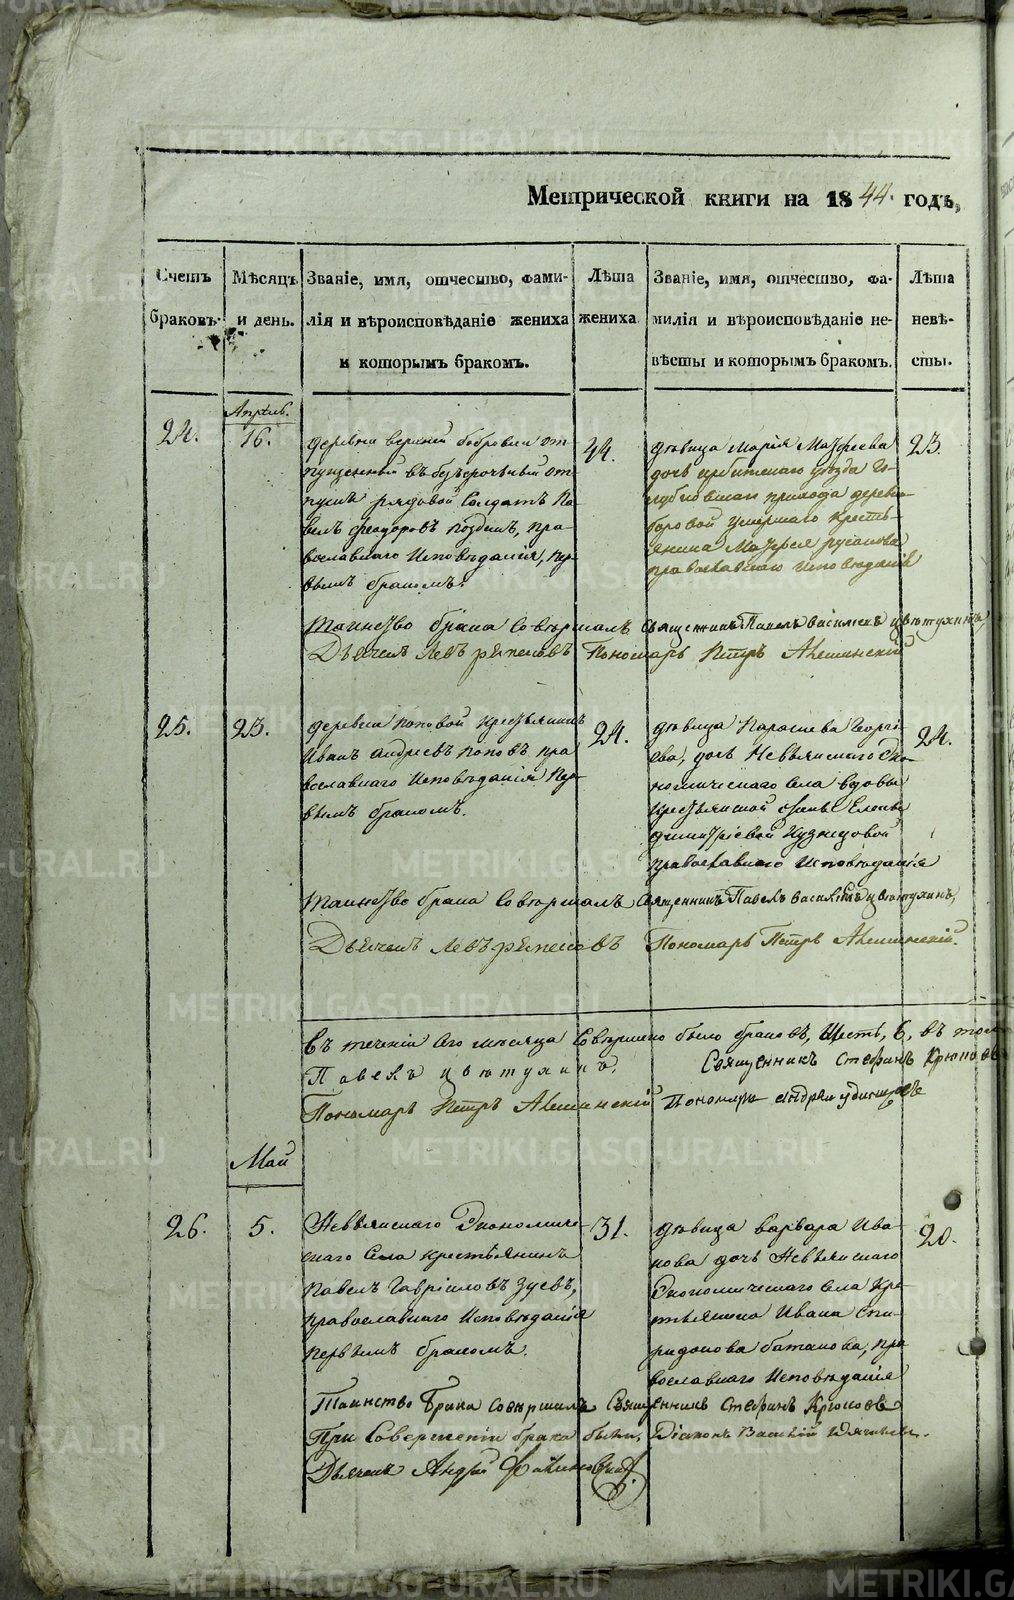 Метрической книги на 1844. годъ,
Счетъ браковъ.
Мѣсяцъ и день.
Званіе, имя, отчество, фами-
лія и вѣроисповѣданіе жениха
и которымъ бракомъ.
Лѣта
жениха
Званіе, имя, отчество, фа-
милія и вѣроисповѣданіе не-
вѣсты и которымъ бракомъ.
Лѣта
невѣ-
сты.
Апрѣль.
24.
16.
деревни верхней бобровки от
пущенный въ безсрочный от
пускъ рядовой Солдатъ Па
велъ феодоровъ, пра-
вославнаго Исповѣданія, пер
вымъ бракомъ.
44.
дѣвица Марія Матфеева
дочь ирбитскаго уѣзда
прихода дерев
умершаго кресть-
янина Матфея русакова
православнаго исповѣданія
23.
Таинство брака Совершалъ Священникъ Павелъ василіевъ цвѣтухинъ,
Дьячекъ Левъ Пономарь Петръ
25.
23.
деревни поповой крестьянинъ
Иванъ андреевъ поповъ пра
вославнаго Исповѣданія пер
вымъ бракомъ.
24.
дѣвица Параскева Георгі
ева, дочь Невьянскаго Эко-
номическаго села вдовы
крестьянской Елены
димитріевой Кузнецовой
православнаго Исповѣданія
24.
Таинство брака Совершалъ Священникъ Павелъ василіевъ цвѣтухинъ,
Дьячекъ Левъ Пономарь Петръ
Въ теченіи сего мѣсяца Совершено было браковъ, Шесть, 6, въ том
Павелъ цвѣтухинъ. Священникъ Стефанъ Крюковъ
Пономарь Петръ Пономарь андрей удинцевъ
Май
26.
5.
Невьянскаго Экономиче-
скаго Села крестьянинъ
Павелъ Гавріиловъ Зуевъ,
православнаго Исповѣданія
первымъ бракомъ.
31.
дѣвица варвара Ива-
нова дочь Невьянскаго
Экономическаго села кре-
стьянина Ивана Спи-
ридонова батакова, пра
вославнаго Исповѣданія
20.
Таинство Брака Совершилъ Священникъ Стефанъ Крюковъ
При Совершеніи брака были, Діаконъ Василій
Дьячекъ Андрей